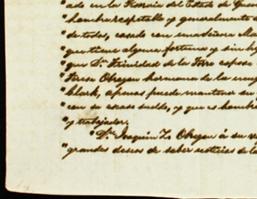 "ado en la Tesorería del Estado de Guer
"hombre respetable y generalmente
"de todos, casado con una Señora Ma
"que tiene alguna fortuna y sin hij
"que Dª. Trinidad de la Torre esposa
"Teran Obregon hermano de la muj
"Clark, apenas puede mantener su
"con su escaso sueldo, y que es hombre
"y trabajador.
"Dn. Joaquin Z. Obregon á su ve
"grandes deseos de saber noticias de la